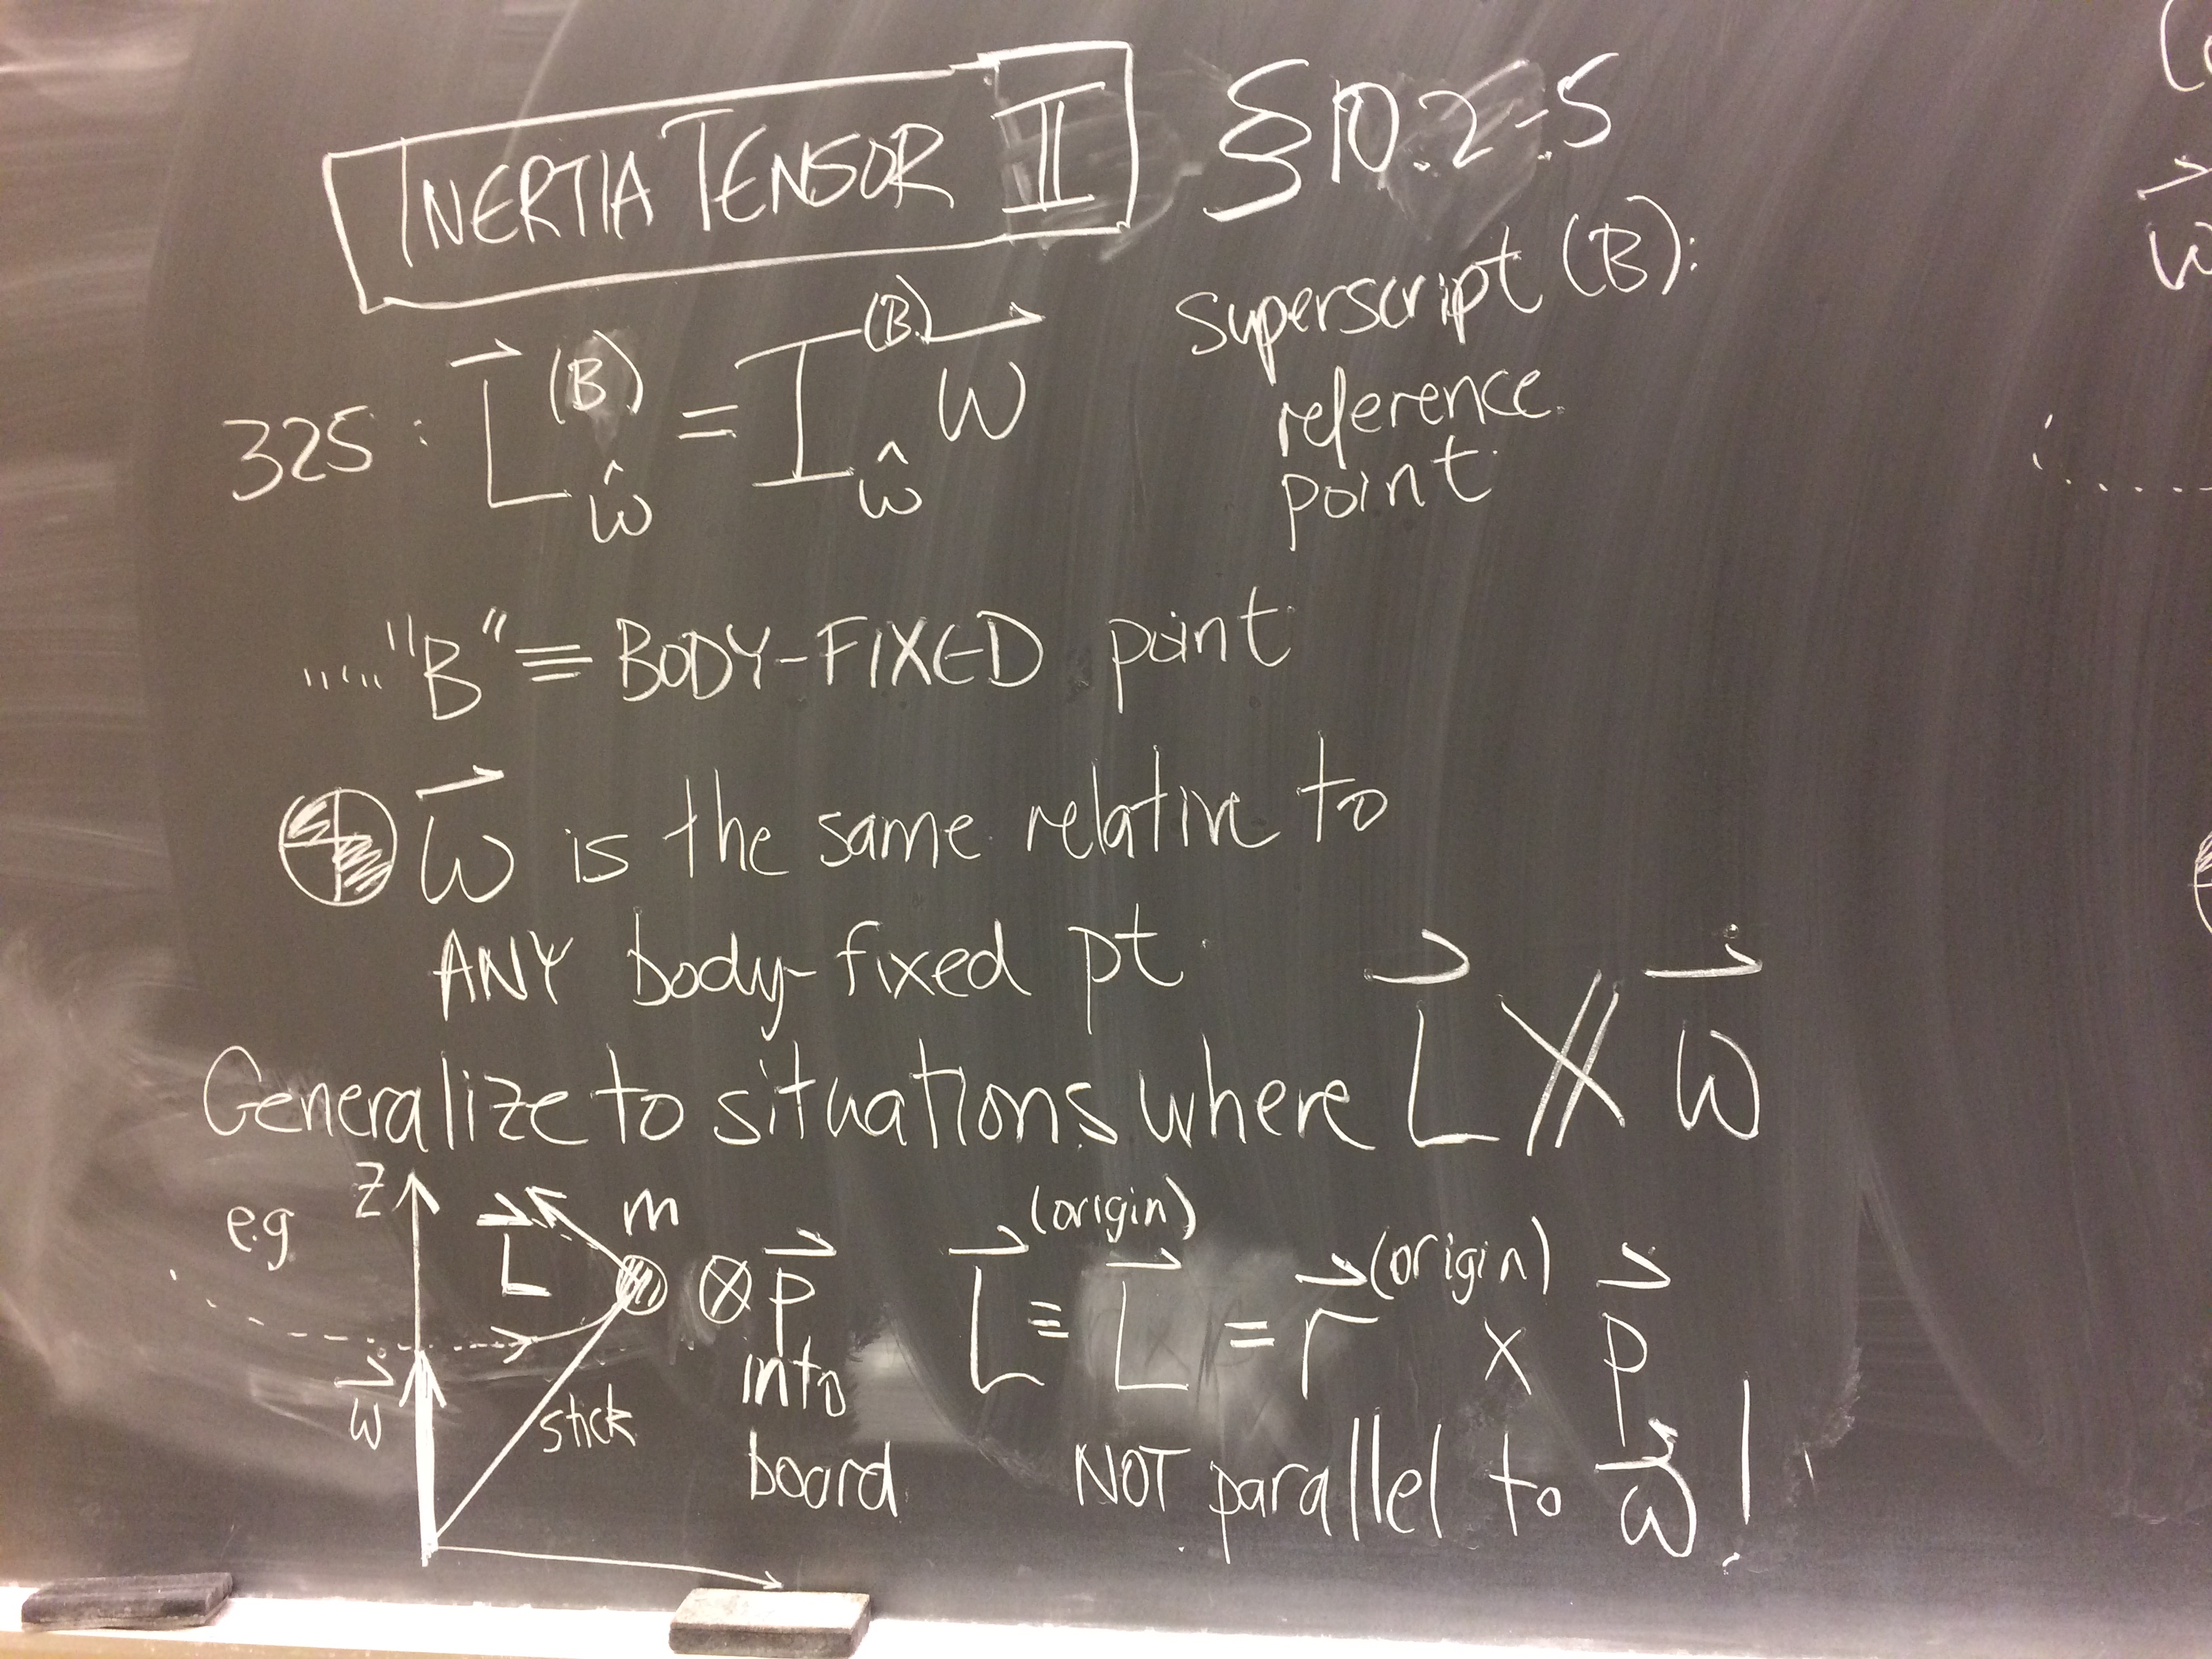 INERTIA TENSOR II § 10.2-5
325: L⃗_ω̂^(B) = I_ω̂^(B) ω⃗
Superscript (B):
reference
point
"B" ≡ BODY-FIXED point
ω⃗ is the same relative to
ANY body-fixed pt.
Generalize to situations where L⃗ ∦ ω⃗
e.g
z
L⃗
m
ω⃗
stick
⊗ p⃗
into
board
L⃗ ≡ L⃗^(origin) = r⃗^(origin) × p⃗
NOT parallel to ω⃗!
ω⃗